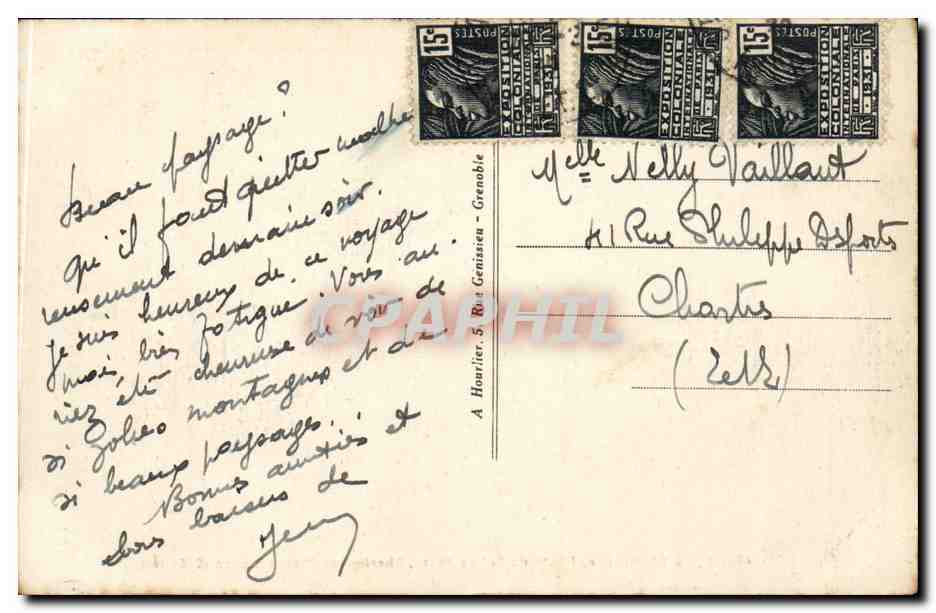 Beau paysage !
qu'il faut quitter malheu
reusement demain soir.
Je suis heureux de ce voyage
mais très fatigué. Vous au
riez été heureuse de voir de
si jolies montagnes et de
si beaux paysages.
Bonnes amitiés et
bons baisers de
Jean
A Hourlier, 5, Rue Genissieu - Grenoble
15c POSTES EXPOSITION COLONIALE INTERNATIONALE DE PARIS 1931
15c POSTES EXPOSITION COLONIALE INTERNATIONALE DE PARIS 1931
15c POSTES EXPOSITION COLONIALE INTERNATIONALE DE PARIS 1931
Melle Nelly Vaillant
41 Rue Philippe Desportes
Chartres
(E et L)
CPAPHIL